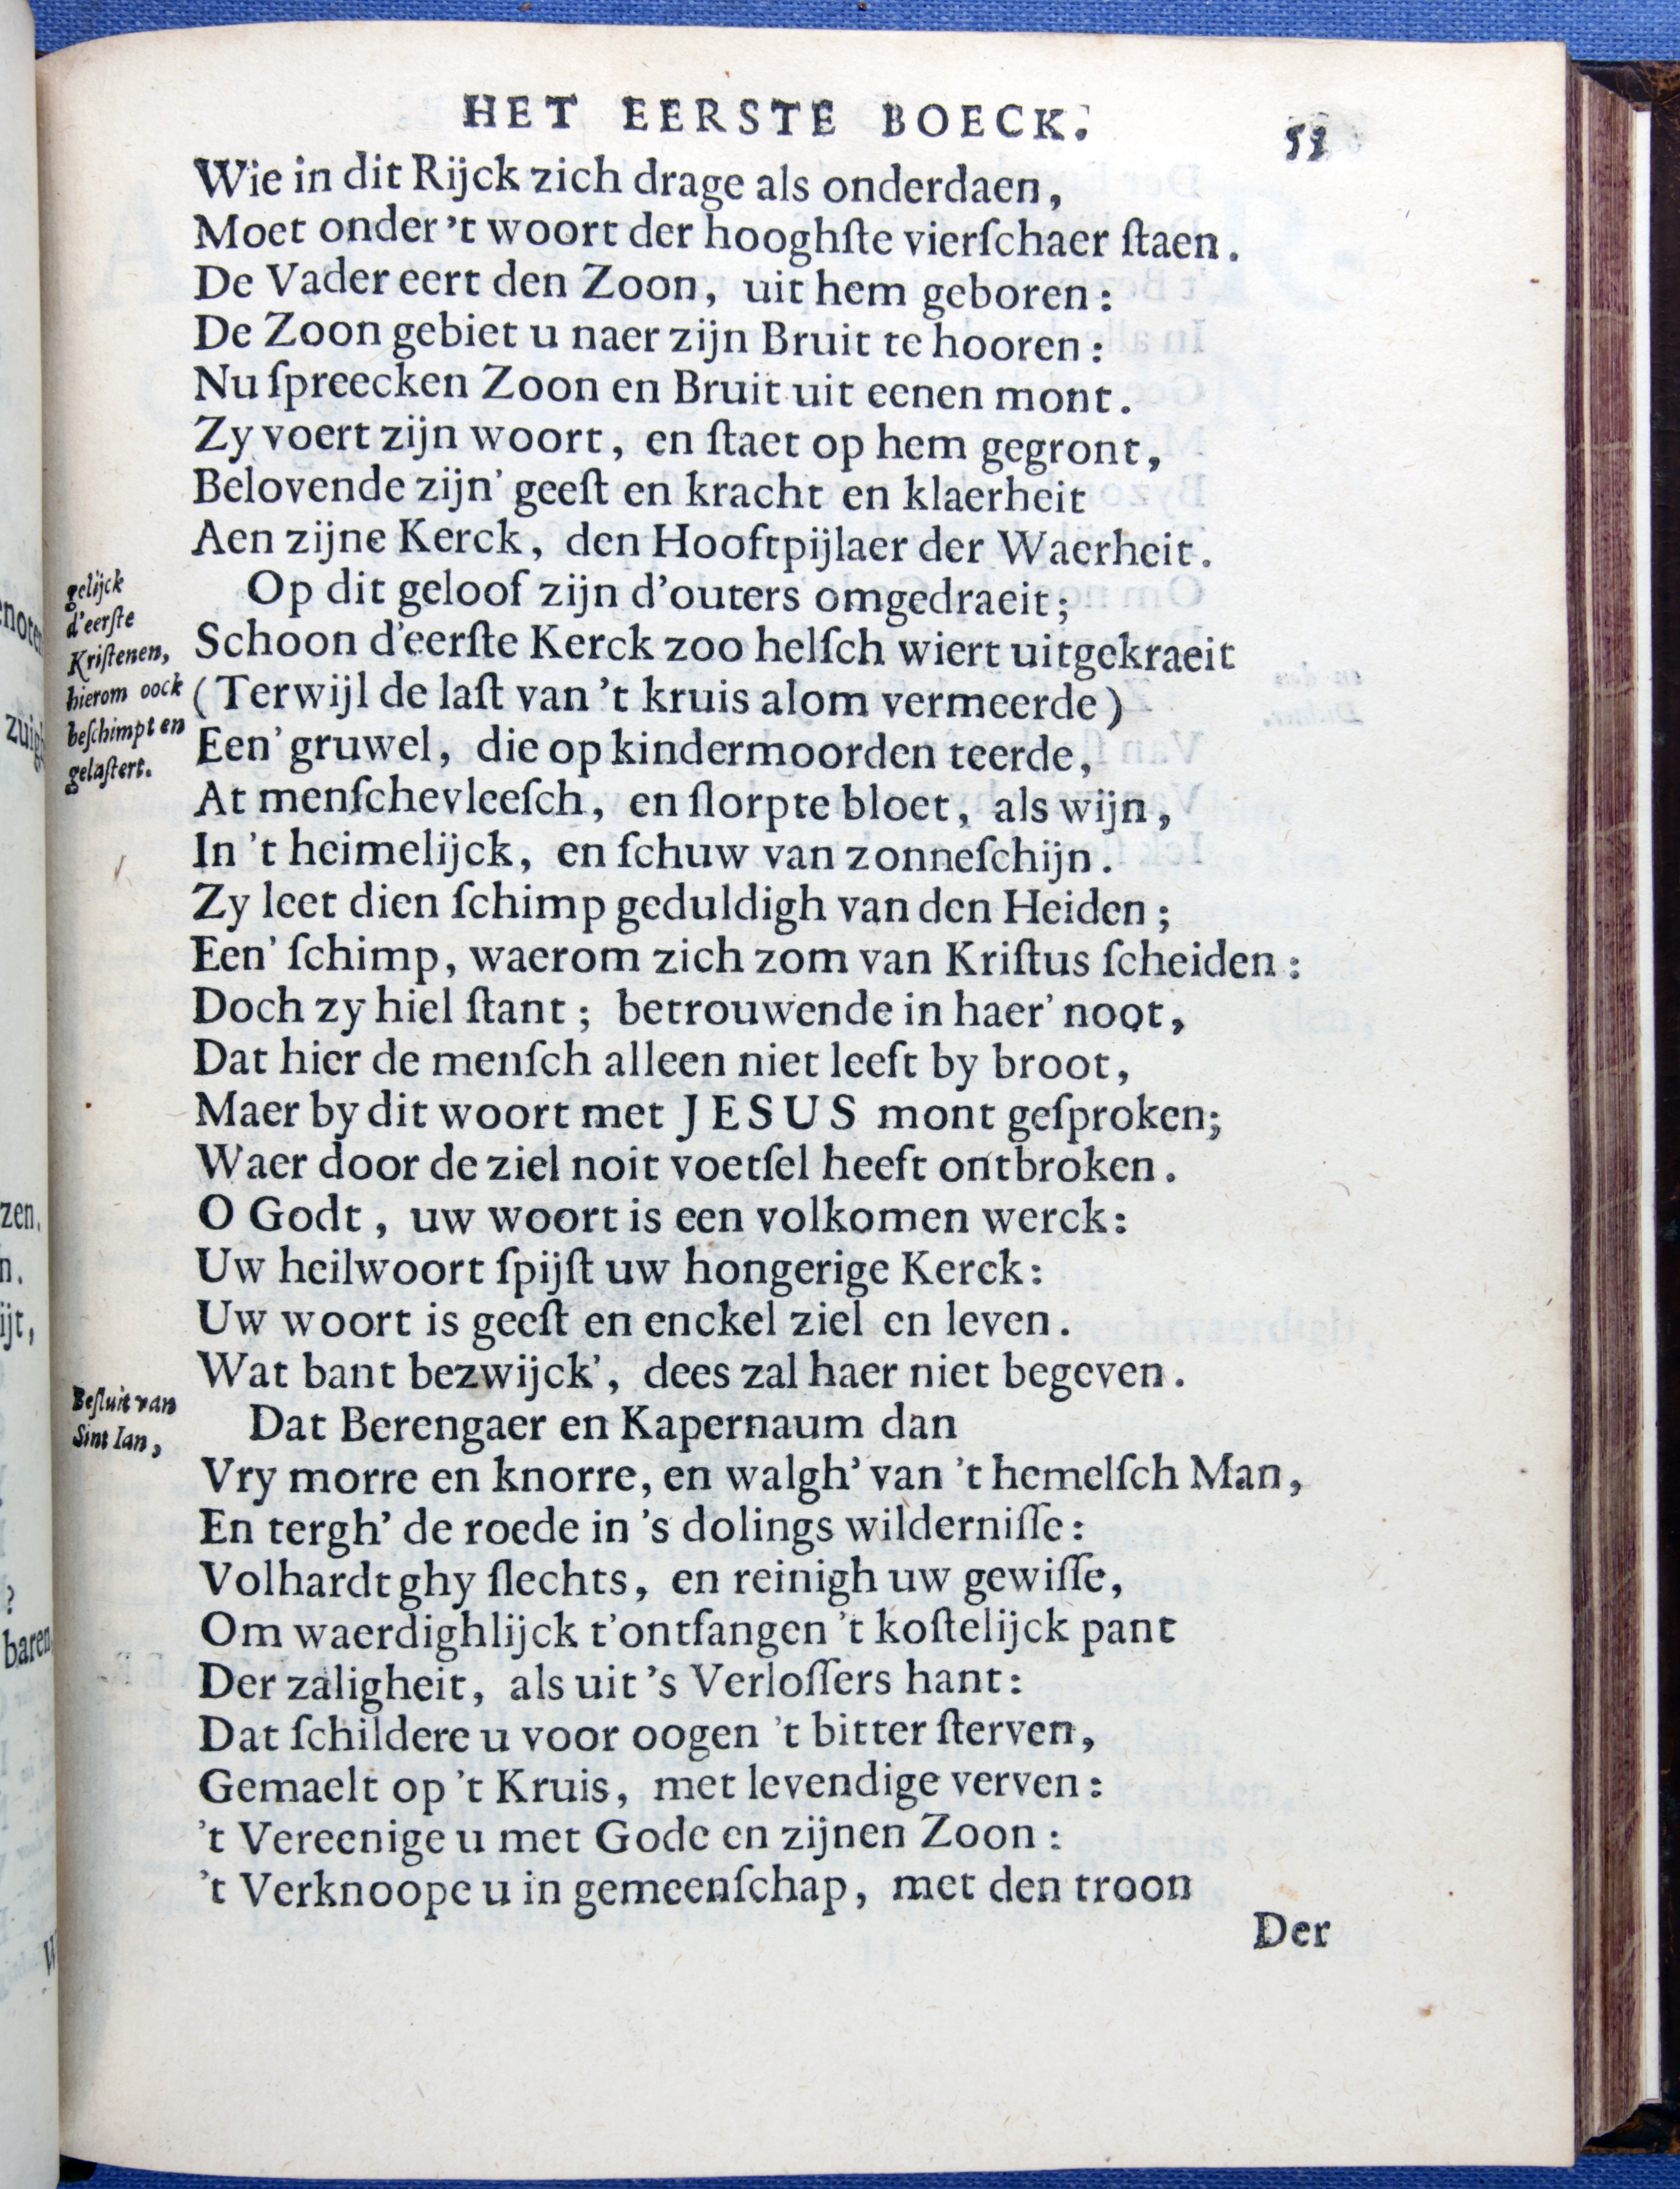 HET EERSTE BOECK. 53
Wie in dit Rijck zich drage als onderdaen,
Moet onder 't woort der hooghſte vierſchaer ſtaen.
De Vader eert den Zoon, uit hem geboren:
De Zoon gebiet u naer zijn Bruit te hooren:
Nu ſpreecken Zoon en Bruit uit eenen mont.
Zy voert zijn woort, en ſtaet op hem gegront,
Belovende zijn' geeſt en kracht en klaerheit
Aen zijne Kerck, den Hooftpijlaer der Waerheit.
gelijck
d'eerſte
Kriſtenen,
hierom oock
beſchimpt en
gelaſtert.
Op dit geloof zijn d'outers omgedraeit;
Schoon d'eerſte Kerck zoo helſch wiert uitgekraeit
(Terwijl de laſt van 't kruis alom vermeerde)
Een' gruwel, die op kindermoorden teerde,
At menſchevleeſch, en ſlorpte bloet, als wijn,
In 't heimelijck, en ſchuw van zonneſchijn.
Zy leet dien ſchimp geduldigh van den Heiden;
Een' ſchimp, waerom zich zom van Kriſtus ſcheiden:
Doch zy hiel ſtant; betrouwende in haer' noot,
Dat hier de menſch alleen niet leeft by broot,
Maer by dit woort met JESUS mont geſproken;
Waer door de ziel noit voetſel heeft ontbroken.
O Godt, uw woort is een volkomen werck:
Uw heilwoort ſpijſt uw hongerige Kerck:
Uw woort is geeſt en enckel ziel en leven.
Wat bant bezwijck', dees zal haer niet begeven.
Beſluit van
Sint Ian,
Dat Berengaer en Kapernaum dan
Vry morre en knorre, en walgh' van 't hemelſch Man,
En tergh' de roede in 's dolings wilderniſſe:
Volhardt ghy ſlechts, en reinigh uw gewiſſe,
Om waerdighlijck t'ontfangen 't koſtelijck pant
Der zaligheit, als uit 's Verloſſers hant:
Dat ſchildere u voor oogen 't bitter ſterven,
Gemaelt op 't Kruis, met levendige verven:
't Vereenige u met Gode en zijnen Zoon:
't Verknoope u in gemeenſchap, met den troon
Der